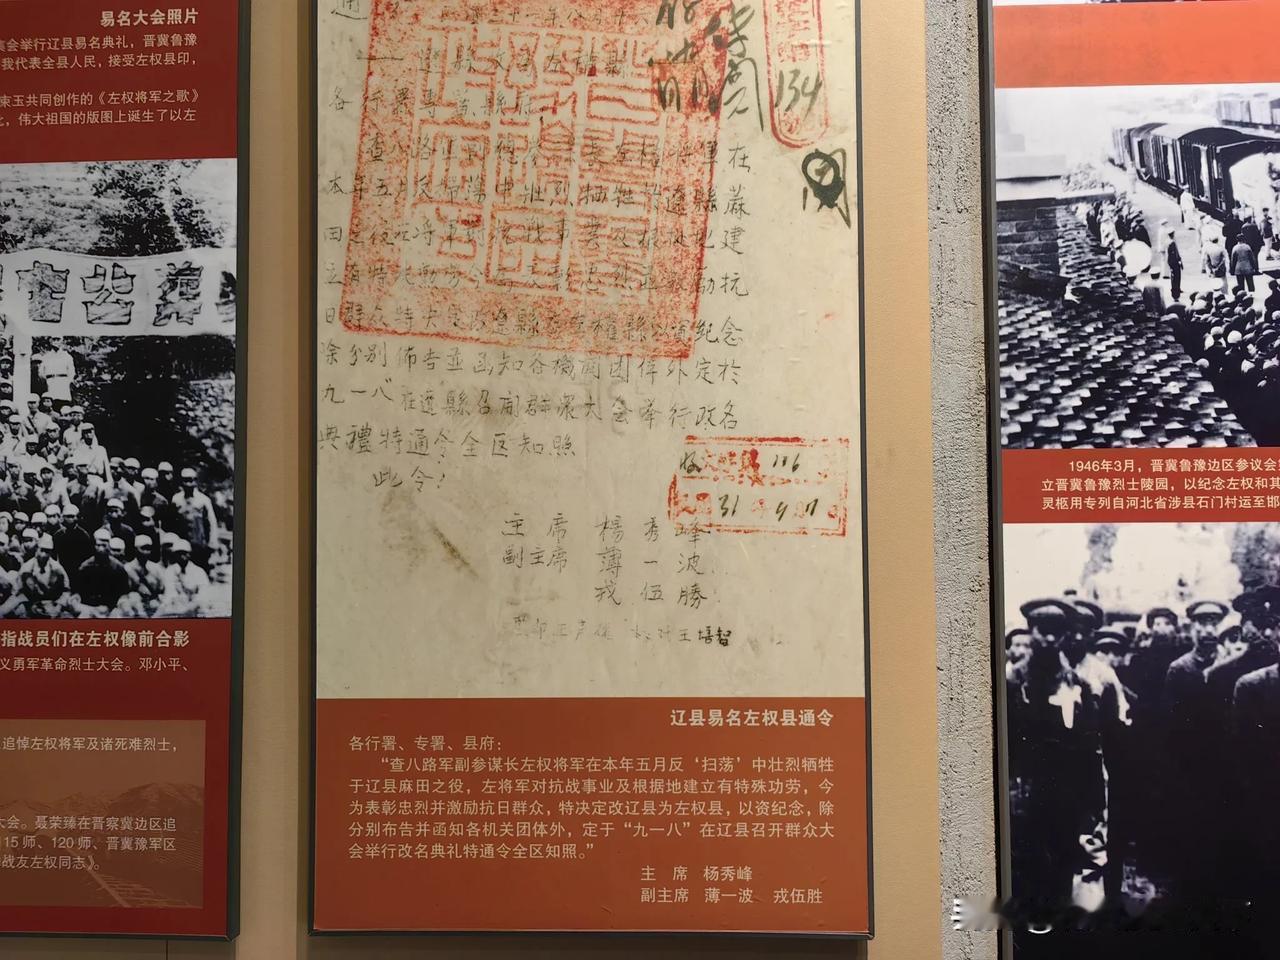 易名大会照片
会举行辽县易名典礼，晋冀鲁豫
我代表全县人民，接受左权县印，
束玉共同创作的《左权将军之歌》
，伟大祖国的版图上诞生了以左
指战员们在左权像前合影
义勇军革命烈士大会。邓小平、
追悼左权将军及诸死难烈士，
大会。聂荣臻在晋察冀边区追
115师、120师、晋冀豫军区
战友左权同志》。
通
各行署專員縣府
查八路軍副總參謀長左權將軍在
本年五月反掃蕩中壯烈犧牲於遼縣蔴
田之役左將軍對抗戰事業及根據地建
立有特殊功勞今為表彰忠烈並激勵抗
日群众特决定改遼縣為左權縣以資紀念
除分別佈告並函知各機関团体外定於
九一八在遼縣召開群众大会举行改名
典禮特通令全区知照
此令！
134
收文 116
31 9 07
主席 楊秀峰
副主席 薄一波
戎伍勝
校对王培智
辽县易名左权县通令
各行署、专署、县府：
“查八路军副参谋长左权将军在本年五月反‘扫荡’中壮烈牺牲
于辽县麻田之役，左将军对抗战事业及根据地建立有特殊功劳，今
为表彰忠烈并激励抗日群众，特决定改辽县为左权县，以资纪念，除
分别布告并函知各机关团体外，定于“九一八”在辽县召开群众大
会举行改名典礼特通令全区知照。”
主 席 杨秀峰
副主席 薄一波 戎伍胜
1946年3月，晋冀鲁豫边区参议会
立晋冀鲁豫烈士陵园，以纪念左权和其
灵柩用专列自河北省涉县石门村运至邯